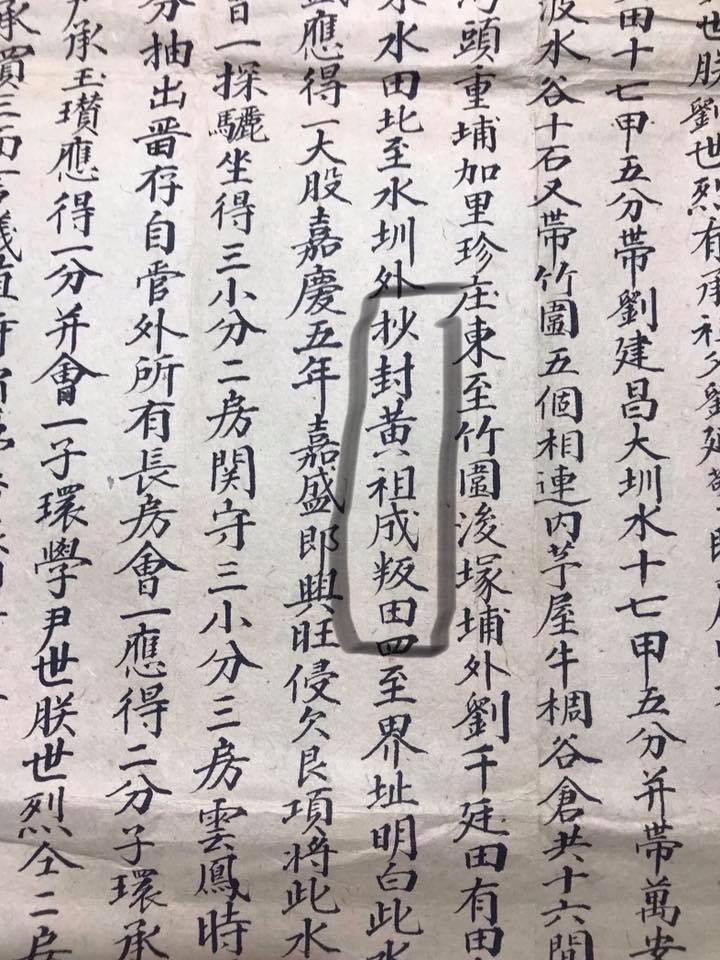 世朕劉世烈有承祖父劉
田十七甲五分帶劉建昌大圳水十七甲五分并帶萬安
波水谷十石又帶竹圍五個相連內芋屋牛椆谷倉共十六間
頭重埔加里珍庄東至竹圍浚塚埔外劉千廷田有田
水田北至水圳外抄封黃祖成叛田四至界址明白此水
應得一大股嘉慶五年嘉盛郎興旺侵欠艮項將此水
一探驪坐得三小分二房関守三小分三房雲鳳時
分抽出番存自管外所有長房會一應得二分子環承
承玉瓚應得一分并會一子環學尹世朕世烈仝二房
承買三面言議